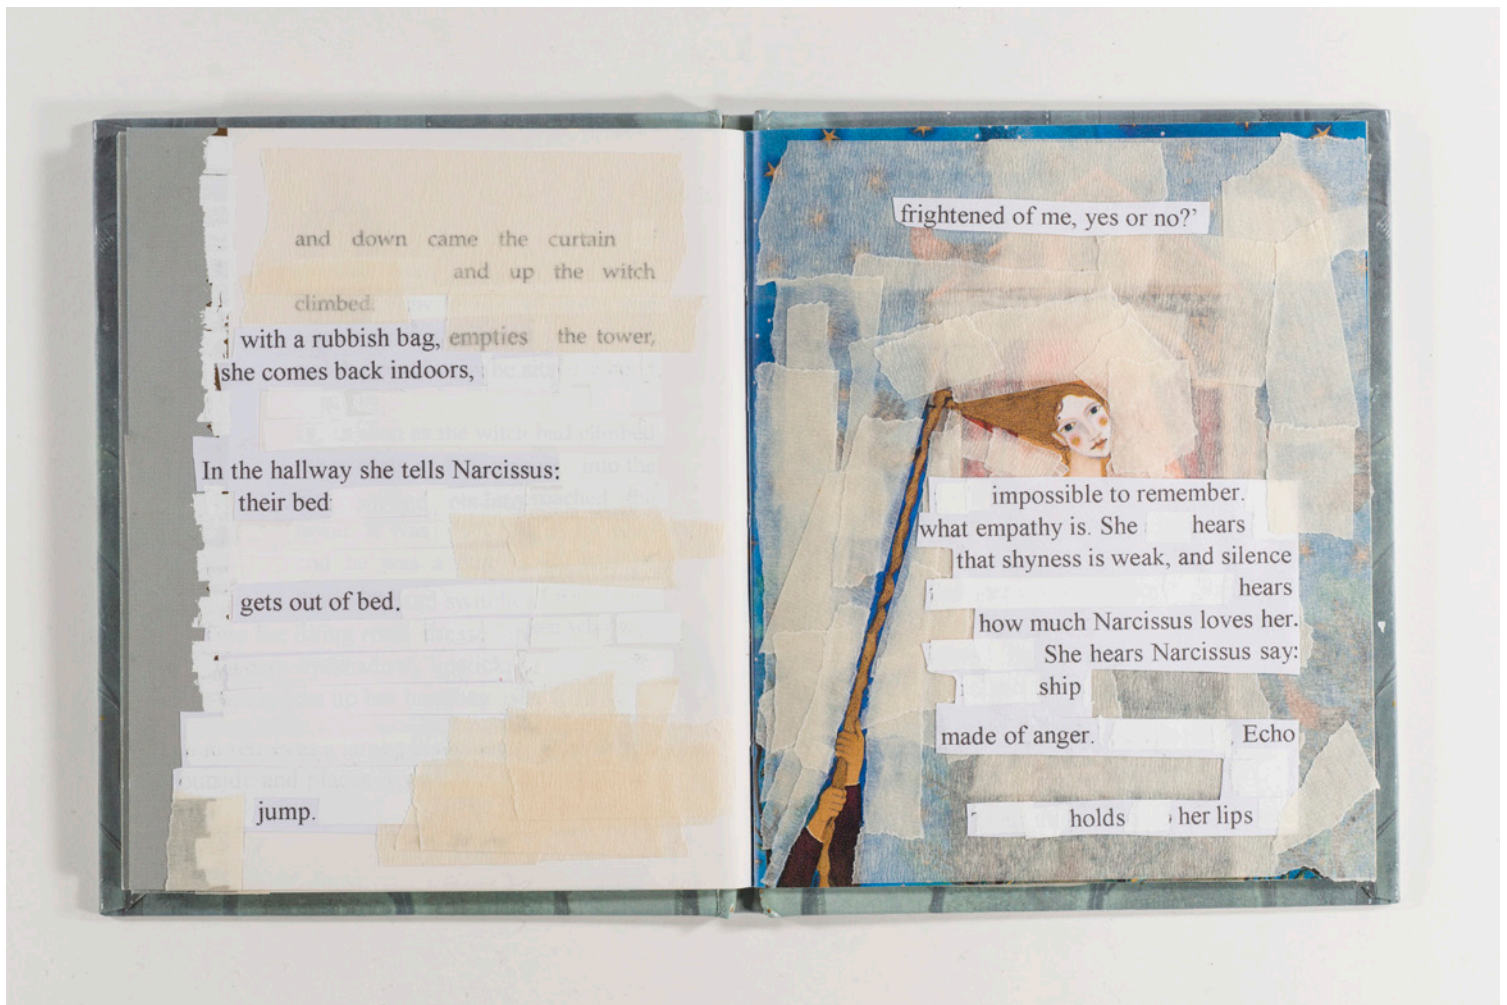 and down came the curtain
and up the witch
climbed.
with a rubbish bag, empties the tower,
she comes back indoors,
In the hallway she tells Narcissus:
their bed
gets out of bed.
jump.
frightened of me, yes or no?’
impossible to remember.
what empathy is. She hears
that shyness is weak, and silence
hears
how much Narcissus loves her.
She hears Narcissus say:
ship
made of anger. Echo
holds her lips